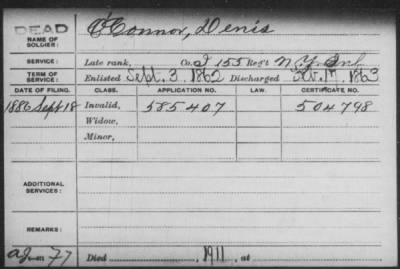 DEAD
NAME OF SOLDIER: O'Connor, Denis
SERVICE: Late rank, Co. I 155 Reg't N.Y. Inf.
TERM OF SERVICE: Enlisted Sept. 3, 1862 Discharged 1863
DATE OF FILING. CLASS. APPLICATION NO. LAW. CERTIFICATE NO.
1886 Sept 18 Invalid, 585407 504798
Widow,
Minor,
ADDITIONAL SERVICES:
REMARKS:
Died , 1911, at